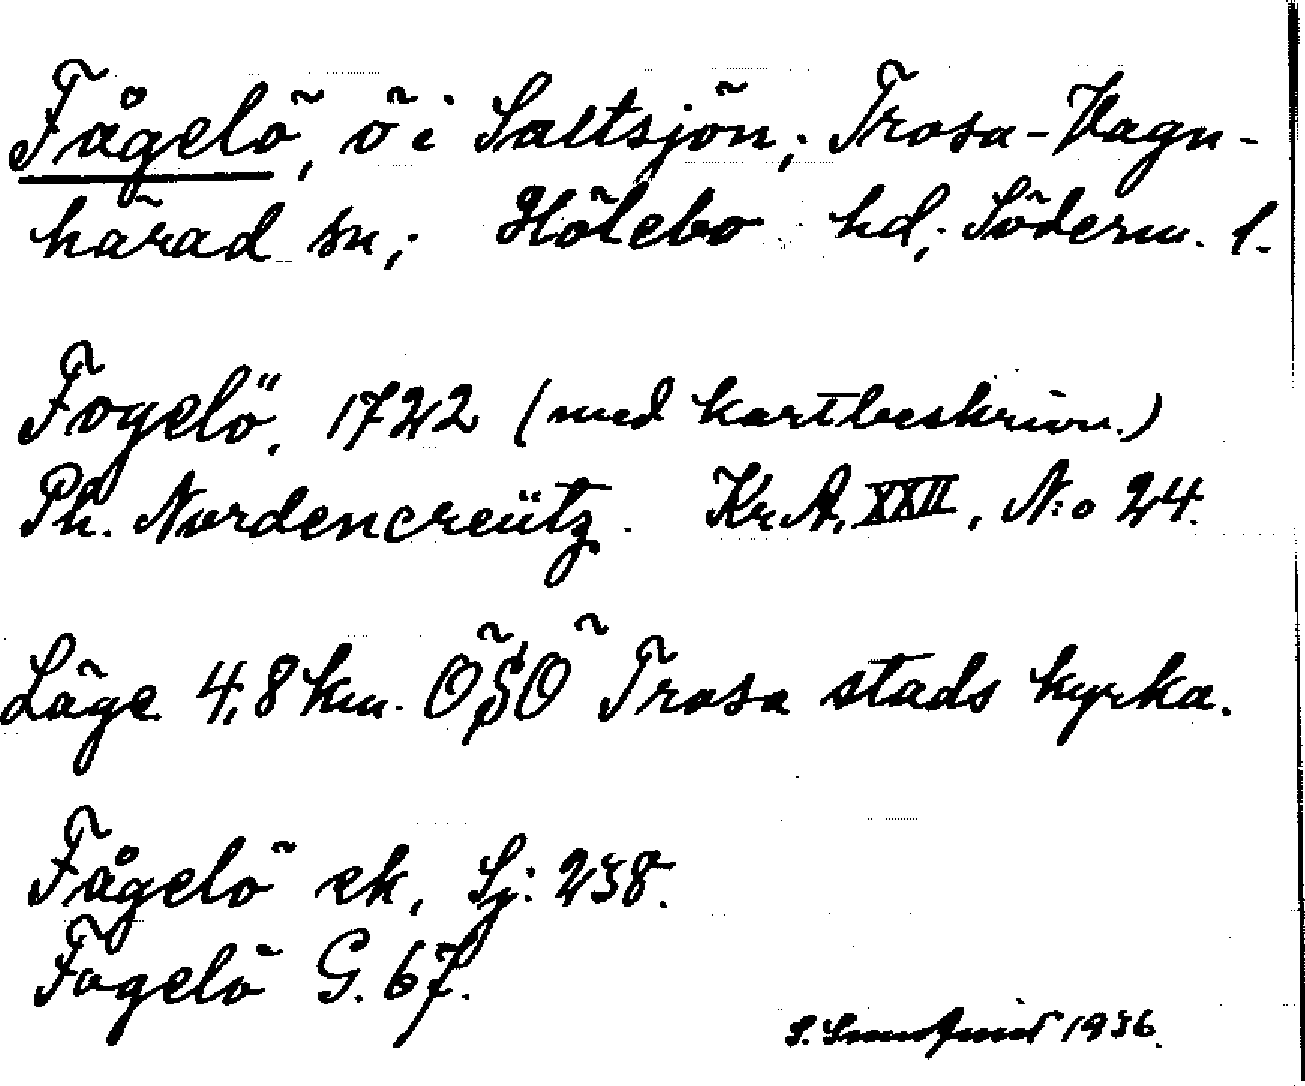 Fågelö, ö i Saltsjön; Trosa-Vagn-
härad sn,; Hölebo hd,; Söderm. l.
Fogelö. 1722 (med kartbeskrivn.)
Ph. Nordencreütz. Kr.A. XXII, N:o 24.
Läge 4,8 km. ÖSÖ Trosa stads kyrka.
Fågelö ek, Sj: 238.
Fogelö G. 67.
S. 1936.